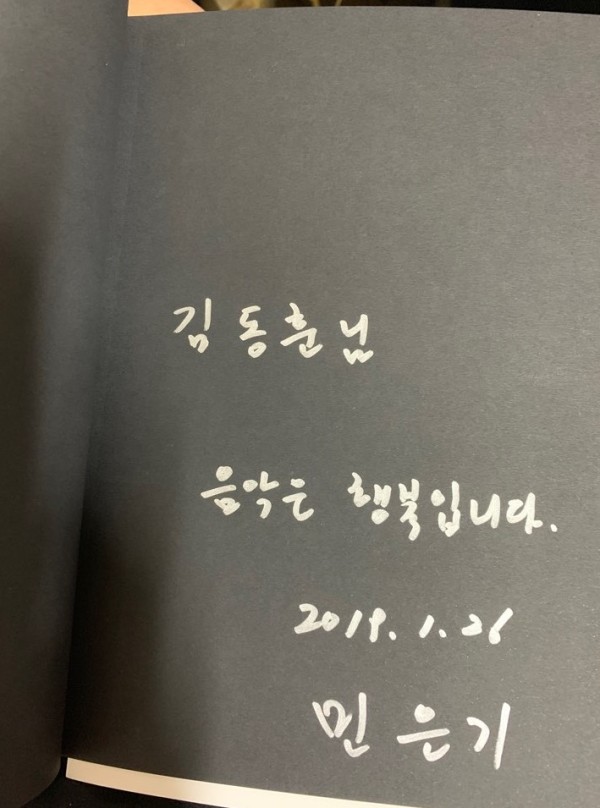 김동훈님
음악은 행복입니다.
2019. 1. 26
민은기